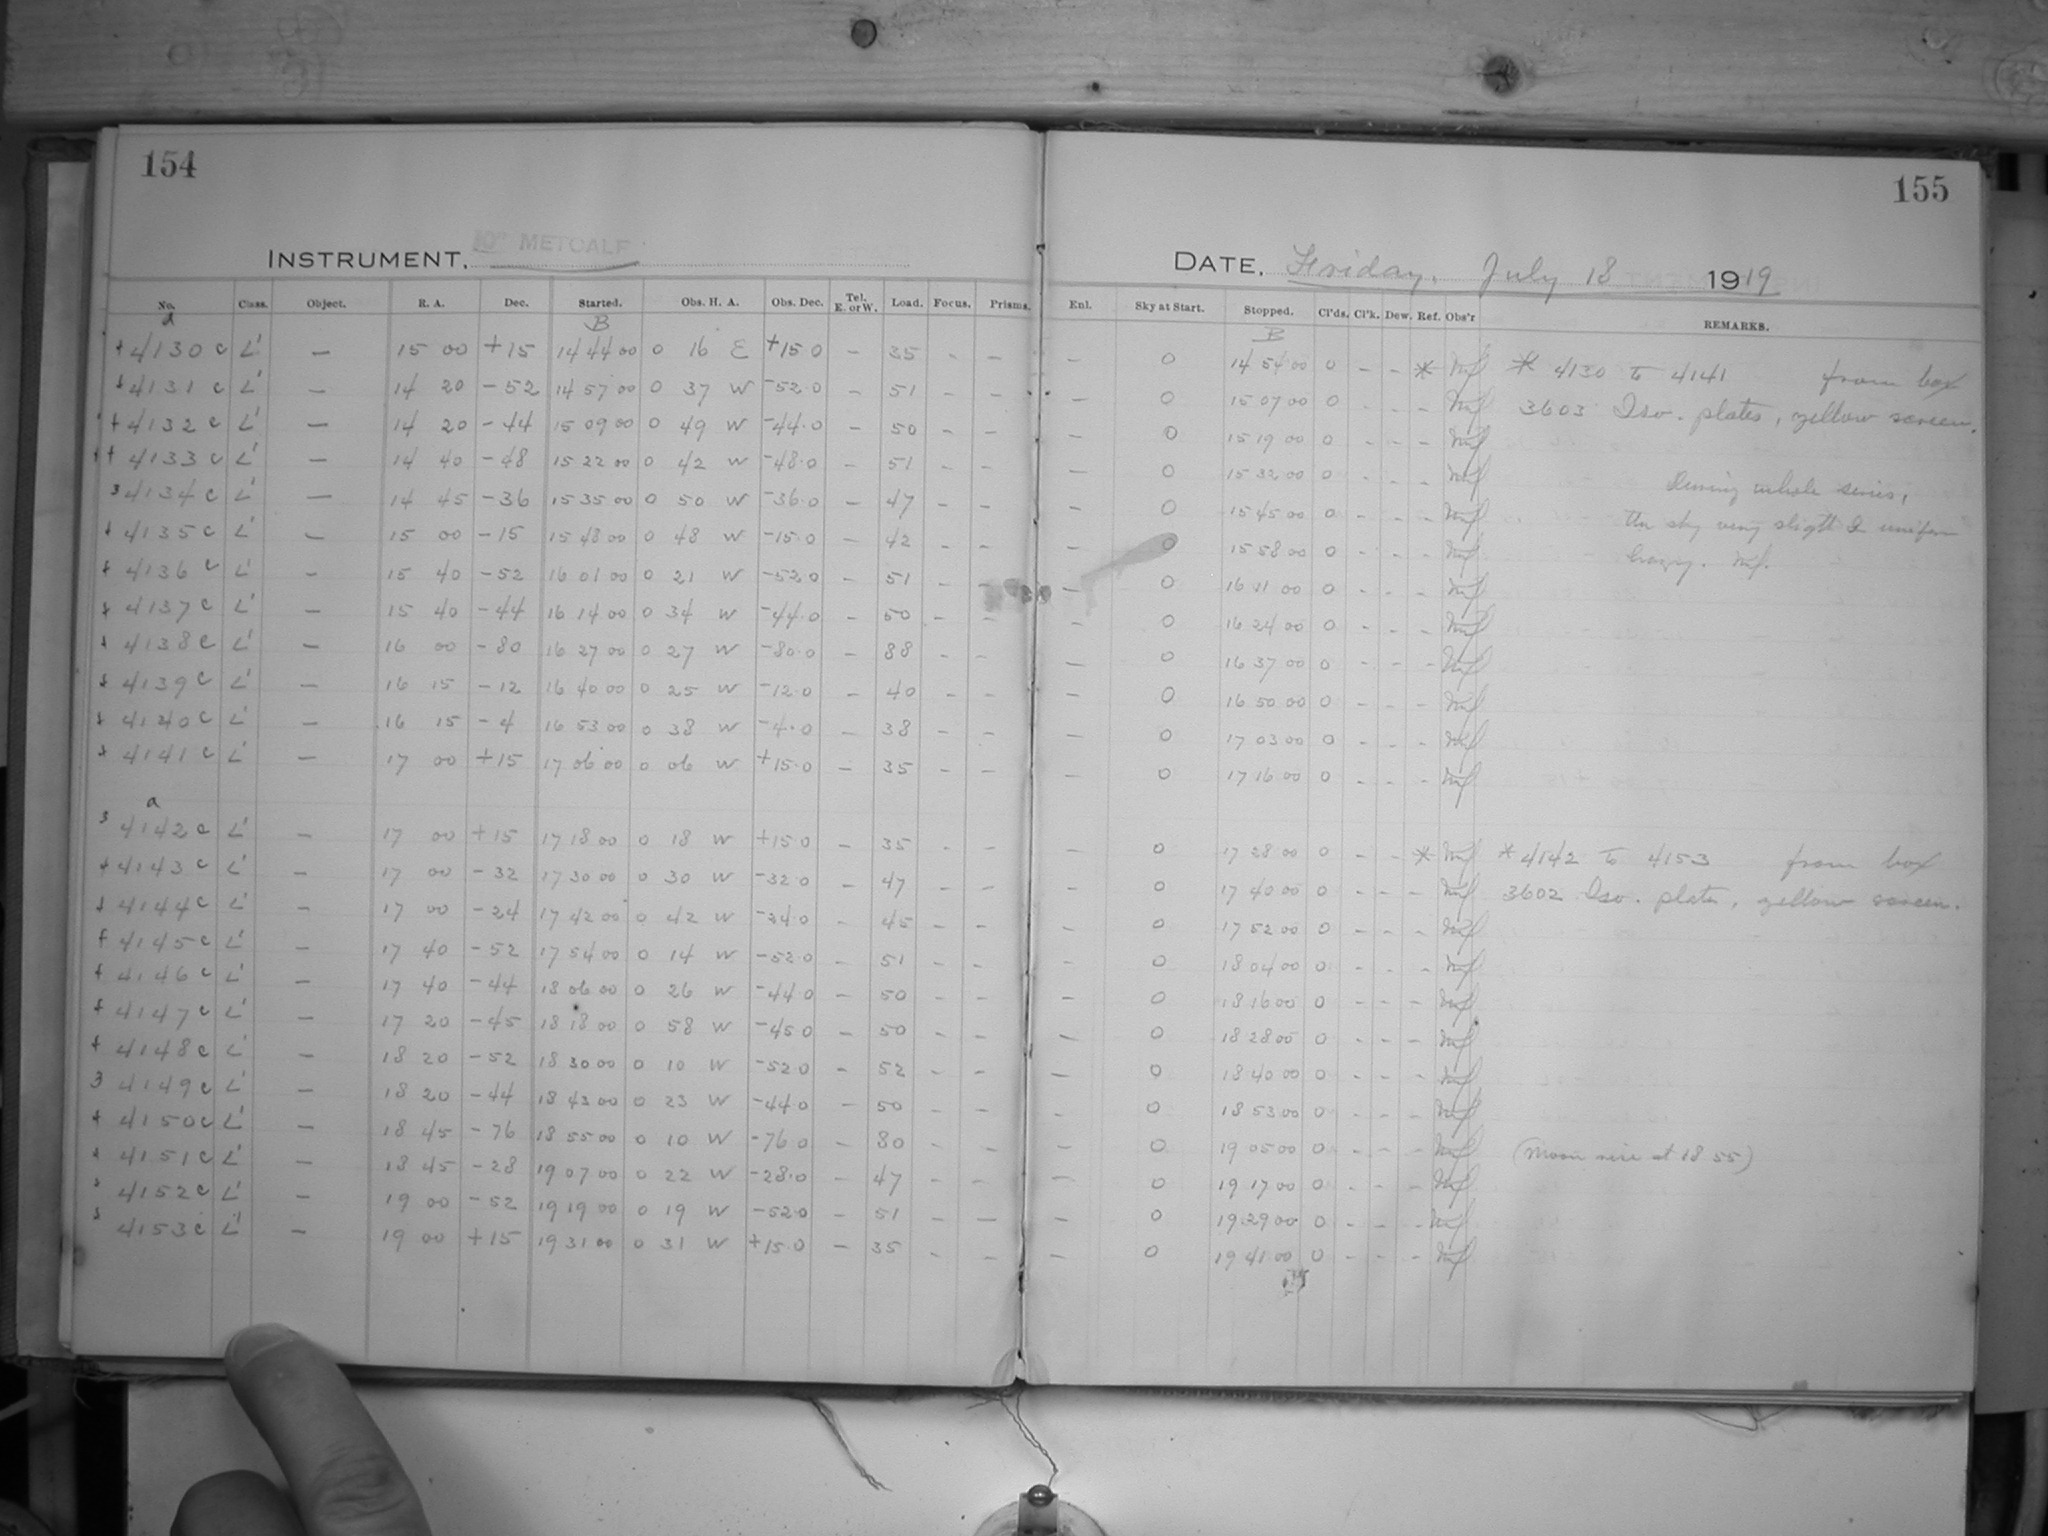 154
155
INSTRUMENT. 10" METCALF
DATE. Friday. July 18 1919
No. Class. Object. R. A. Dec. Started. Obs. H. A. Obs. Dec. Tel. E. or W. Load. Focus. Prisms. Enl. Sky at Start. Stopped. Cl'ds. Cl'k. Dew. Ref. Obs'r REMARKS.
a B B
4130 c L' — 15 00 +15 14 44 00 0 16 E +15 0 – 35 - — — 0 14 54 00 0 - - * * 4130 to 4141 from box
4131 c L' — 14 20 -52 14 57 00 0 37 W -52.0 – 51 - - — 0 15 07 00 0 - - - 3603 Iso. plates, yellow screen.
4132 c L' — 14 20 -44 15 09 00 0 49 W -44.0 – 50 - - — 0 15 19 00 0 - - -
4133 c L' — 14 40 -48 15 22 00 0 42 W -48.0 – 51 - - — 0 15 32 00 0 - - - During whole series,
4134 c L' — 14 45 -36 15 35 00 0 50 W -36.0 – 47 - - — 0 15 45 00 0 - - - the sky very slight & uniform
4135 c L' — 15 00 -15 15 48 00 0 48 W -15.0 – 42 - - — 0 15 58 00 0 - - - hazy.
4136 c L' — 15 40 -52 16 01 00 0 21 W -52.0 – 51 - — 0 16 11 00 0 - - -
4137 c L' — 15 40 -44 16 14 00 0 34 W -44.0 – 50 - - — 0 16 24 00 0 - - -
4138 c L' — 16 00 -80 16 27 00 0 27 W -80.0 – 88 - - — 0 16 37 00 0 - - -
4139 c L' — 16 15 -12 16 40 00 0 25 W -12.0 – 40 - - — 0 16 50 00 0 - - -
4140 c L' — 16 15 -4 16 53 00 0 38 W -4.0 – 38 - - — 0 17 03 00 0 - - -
4141 c L' — 17 00 +15 17 06 00 0 06 W +15.0 – 35 - - — 0 17 16 00 0 - - -
a
4142 c L' — 17 00 +15 17 18 00 0 18 W +15 0 – 35 - - — 0 17 28 00 0 - - * * 4142 to 4153 from box
4143 c L' — 17 00 -32 17 30 00 0 30 W -32.0 – 47 - - — 0 17 40 00 0 - - - 3602 Iso. plates, yellow screen.
4144 c L' — 17 00 -24 17 42 00 0 42 W -24.0 – 45 - - — 0 17 52 00 0 - - -
4145 c L' — 17 40 -52 17 54 00 0 14 W -52.0 – 51 - - — 0 18 04 00 0 - - -
4146 c L' — 17 40 -44 18 06 00 0 26 W -44 0 – 50 - - — 0 18 16 00 0 - - -
4147 c L' — 17 20 -45 18 18 00 0 58 W -45 0 – 50 - - — 0 18 28 00 0 - - -
4148 c L' — 18 20 -52 18 30 00 0 10 W -52 0 – 52 - - — 0 18 40 00 0 - - -
4149 c L' — 18 20 -44 18 43 00 0 23 W -44 0 – 50 - - — 0 18 53 00 0 - - -
4150 c L' — 18 45 -76 18 55 00 0 10 W -76 0 – 80 - - — 0 19 05 00 0 - - - (Moon rise at 18 55)
4151 c L' — 18 45 -28 19 07 00 0 22 W -28.0 – 47 - - — 0 19 17 00 0 - - -
4152 c L' — 19 00 -52 19 19 00 0 19 W -52.0 – 51 - - — 0 19 29 00 0 - - -
4153 c L' — 19 00 +15 19 31 00 0 31 W +15.0 – 35 - - — 0 19 41 00 0 - - -